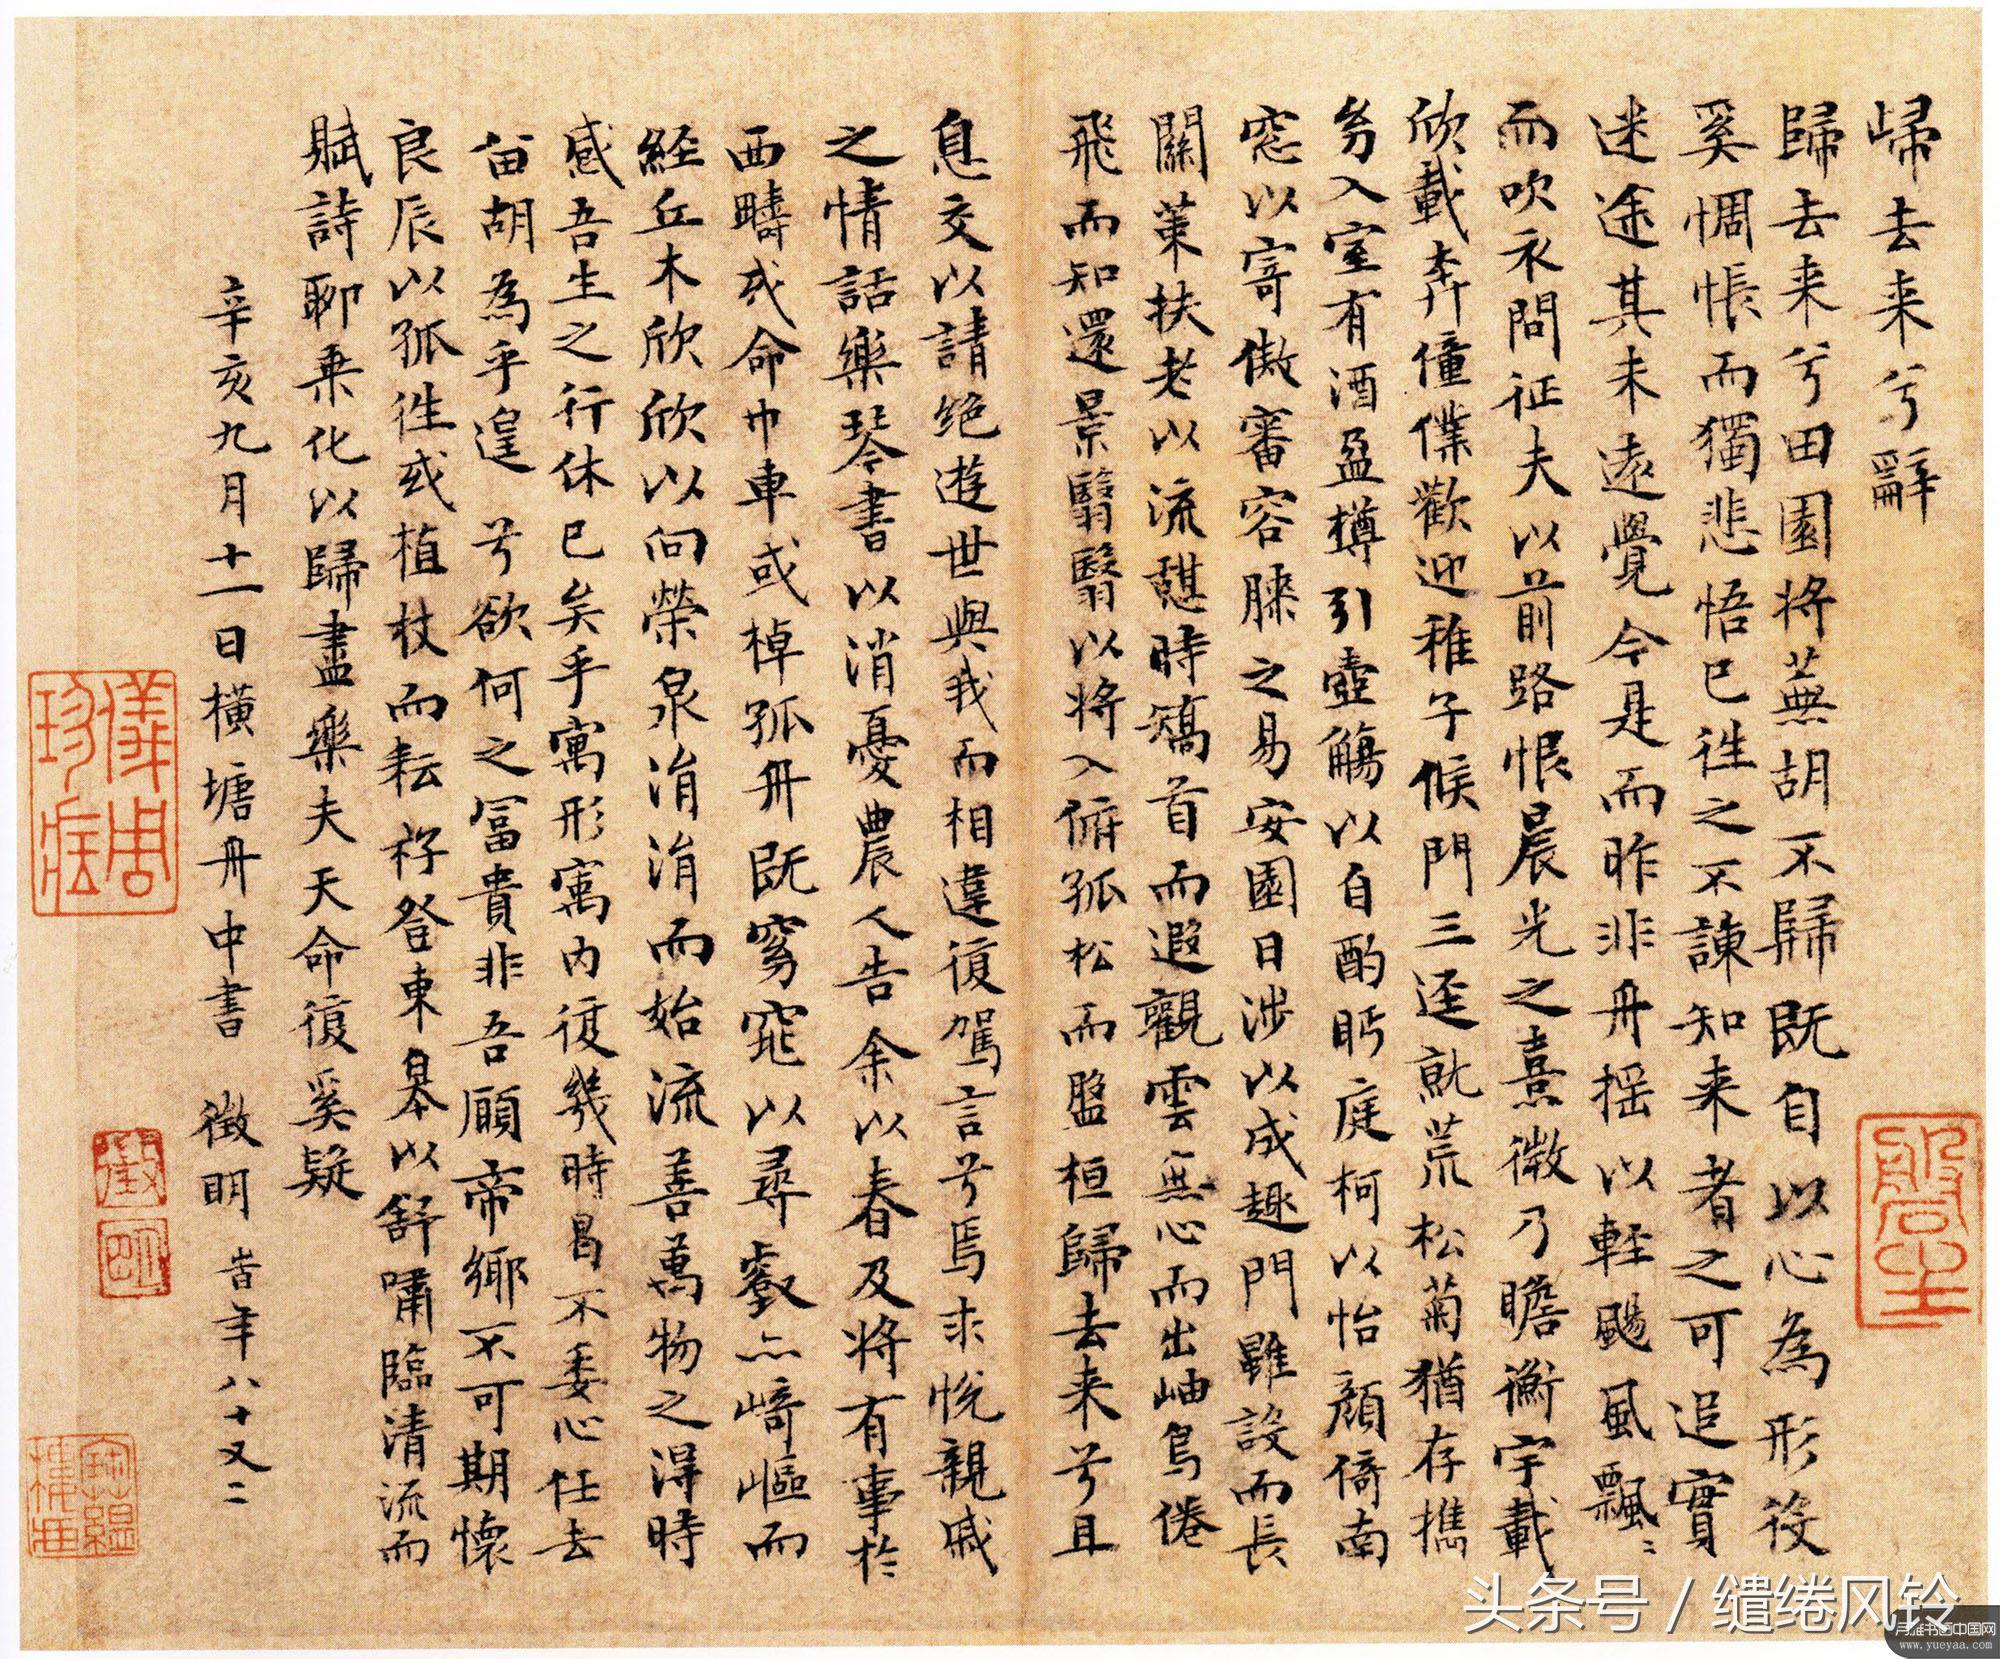 歸去来兮辭
歸去来兮田園将蕪胡不歸既自以心為形役
奚惆悵而獨悲悟已往之不諫知来者之可追實
迷途其未遠覺今是而昨非舟揺以軽颺風飄〻
而吹衣問征夫以前路恨晨光之熹微乃瞻衡宇載
欣載奔僮僕歡迎稚子候門三逕就荒松菊猶存攜
㓜入室有酒盈樽引壺觴以自酌眄庭柯以怡顔倚南
窓以寄傲審容膝之易安園日涉以成趣門雖設而長
關策扶老以流憇時矯首而遐觀雲無心而出岫鳥倦
飛而知還景翳翳以将入俯孤松而盤桓歸去来兮且
息交以請绝遊世與我而相違復駕言兮焉求悦親戚
之情話樂琴書以消憂農人告余以春及将有事於
西疇或命巾車或棹孤舟既窈窕以尋壑亦崎嶇而
経丘木欣欣以向榮泉涓涓而始流善萬物之得時
感吾生之行休已矣乎寓形寓内復幾時曷不委心任去
留胡為乎遑兮欲何之冨貴非吾願帝郷不可期懷
良辰以孤往或植杖而耘耔登東皋以舒嘯臨清流而
賦詩聊乗化以歸盡樂夫天命復奚疑
辛亥九月十一日横塘舟中書 徴明 峕年八十又二
徵明
头条号 / 缱绻风铃
月雅书画中国网
www.yueyaa.com